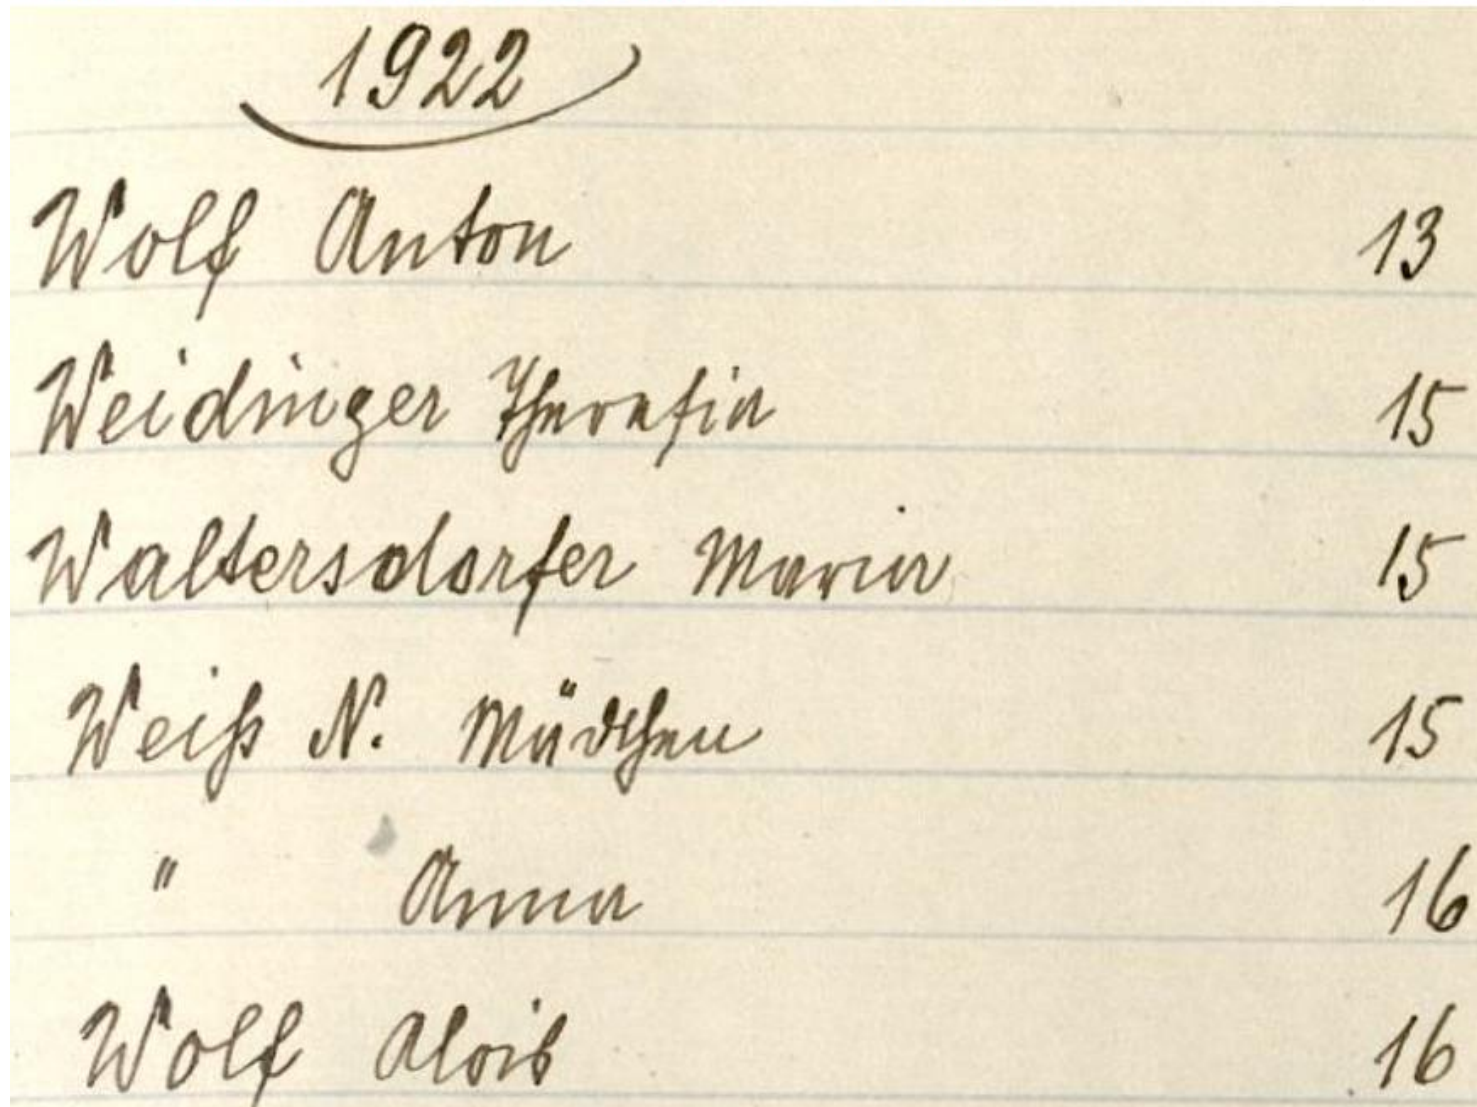 1922
Wolf Anton 13
Weidinger Theresia 15
Waltersdorfer Maria 15
Weiß N. Mädchen 15
" Anna 16
Wolf Alois 16